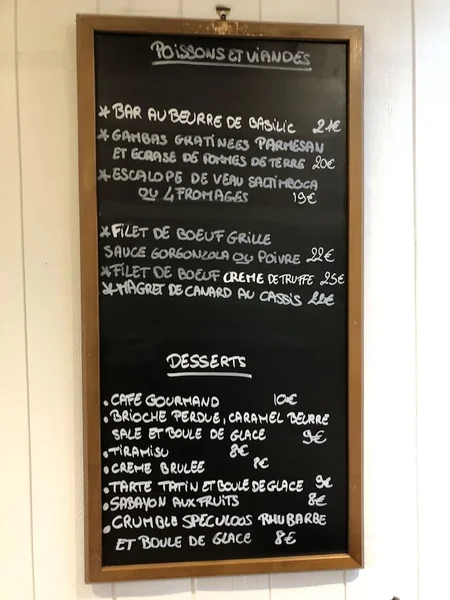 POISSONS ET VIANDES
* BAR AU BEURRE DE BASILIC 21€
* GAMBAS GRATINEES PARMESAN
ET ECRASE DE POMMES DE TERRE 20€
* ESCALOPE DE VEAU SALTIMBOCA
OU 4 FROMAGES 19€
* FILET DE BOEUF GRILLE
SAUCE GORGONZOLA OU POIVRE 22€
* FILET DE BOEUF CREME DE TRUFFE 25€
* MAGRET DE CANARD AU CASSIS 22€
DESSERTS
• CAFE GOURMAND 10€
• BRIOCHE PERDUE, CARAMEL BEURRE
SALE ET BOULE DE GLACE 9€
• TIRAMISU 8€
• CREME BRULEE €
• TARTE TATIN ET BOULE DE GLACE 9€
• SABAYON AUX FRUITS 8€
• CRUMBLE SPECULOOS RHUBARBE
ET BOULE DE GLACE 8€